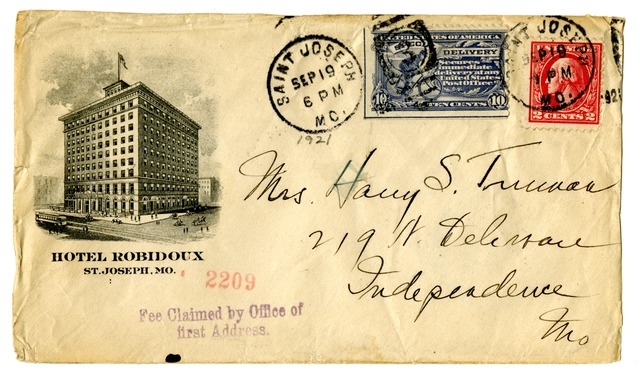 SAINT JOSEPH
SEP 19
6 PM
MO.
1921
UNITED STATES OF AMERICA
DELIVERY
Secures
immediate
delivery at any
United States
Post Office
10 TEN CENTS 10
SAINT JOSEPH
SEP 19
6 PM
MO.
2 CENTS 2
Mrs. Harry S. Truman
219 N. Delaware
Independence
Mo
HOTEL ROBIDOUX
ST. JOSEPH, MO.
2209
Fee Claimed by Office of
first Address.